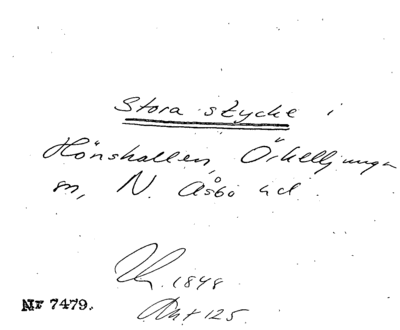 Stora stycke i
Hönshallen, Örkelljunga
sn, N. Åsbo hd.
1848
125
Nr 7479.